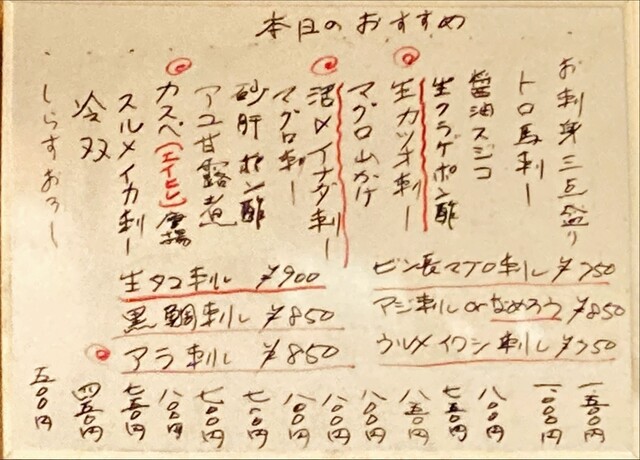 本日のおすすめ
お刺身三点盛り 一、五〇〇円
トロ馬刺し 一、〇〇〇円
醤油スジコ 八〇〇円
生クラゲポン酢 七五〇円
生カツオ刺し 八五〇円
マグロ山かけ 八〇〇円
活〆イナダ刺し 八〇〇円
マグロ刺し 八〇〇円
砂肝ポン酢 七〇〇円
アユ甘露煮 七〇〇円
カスベ(エイヒレ)唐揚 八〇〇円
スルメイカ刺し 七五〇円
冷奴 四五〇円
しらすおろし 五〇〇円
ビン長マグロ刺し ¥750
アジ刺しorなめろう ¥850
ウルメイワシ刺し ¥750
生タコ刺し ¥900
黒鯛刺し ¥850
アラ刺し ¥850